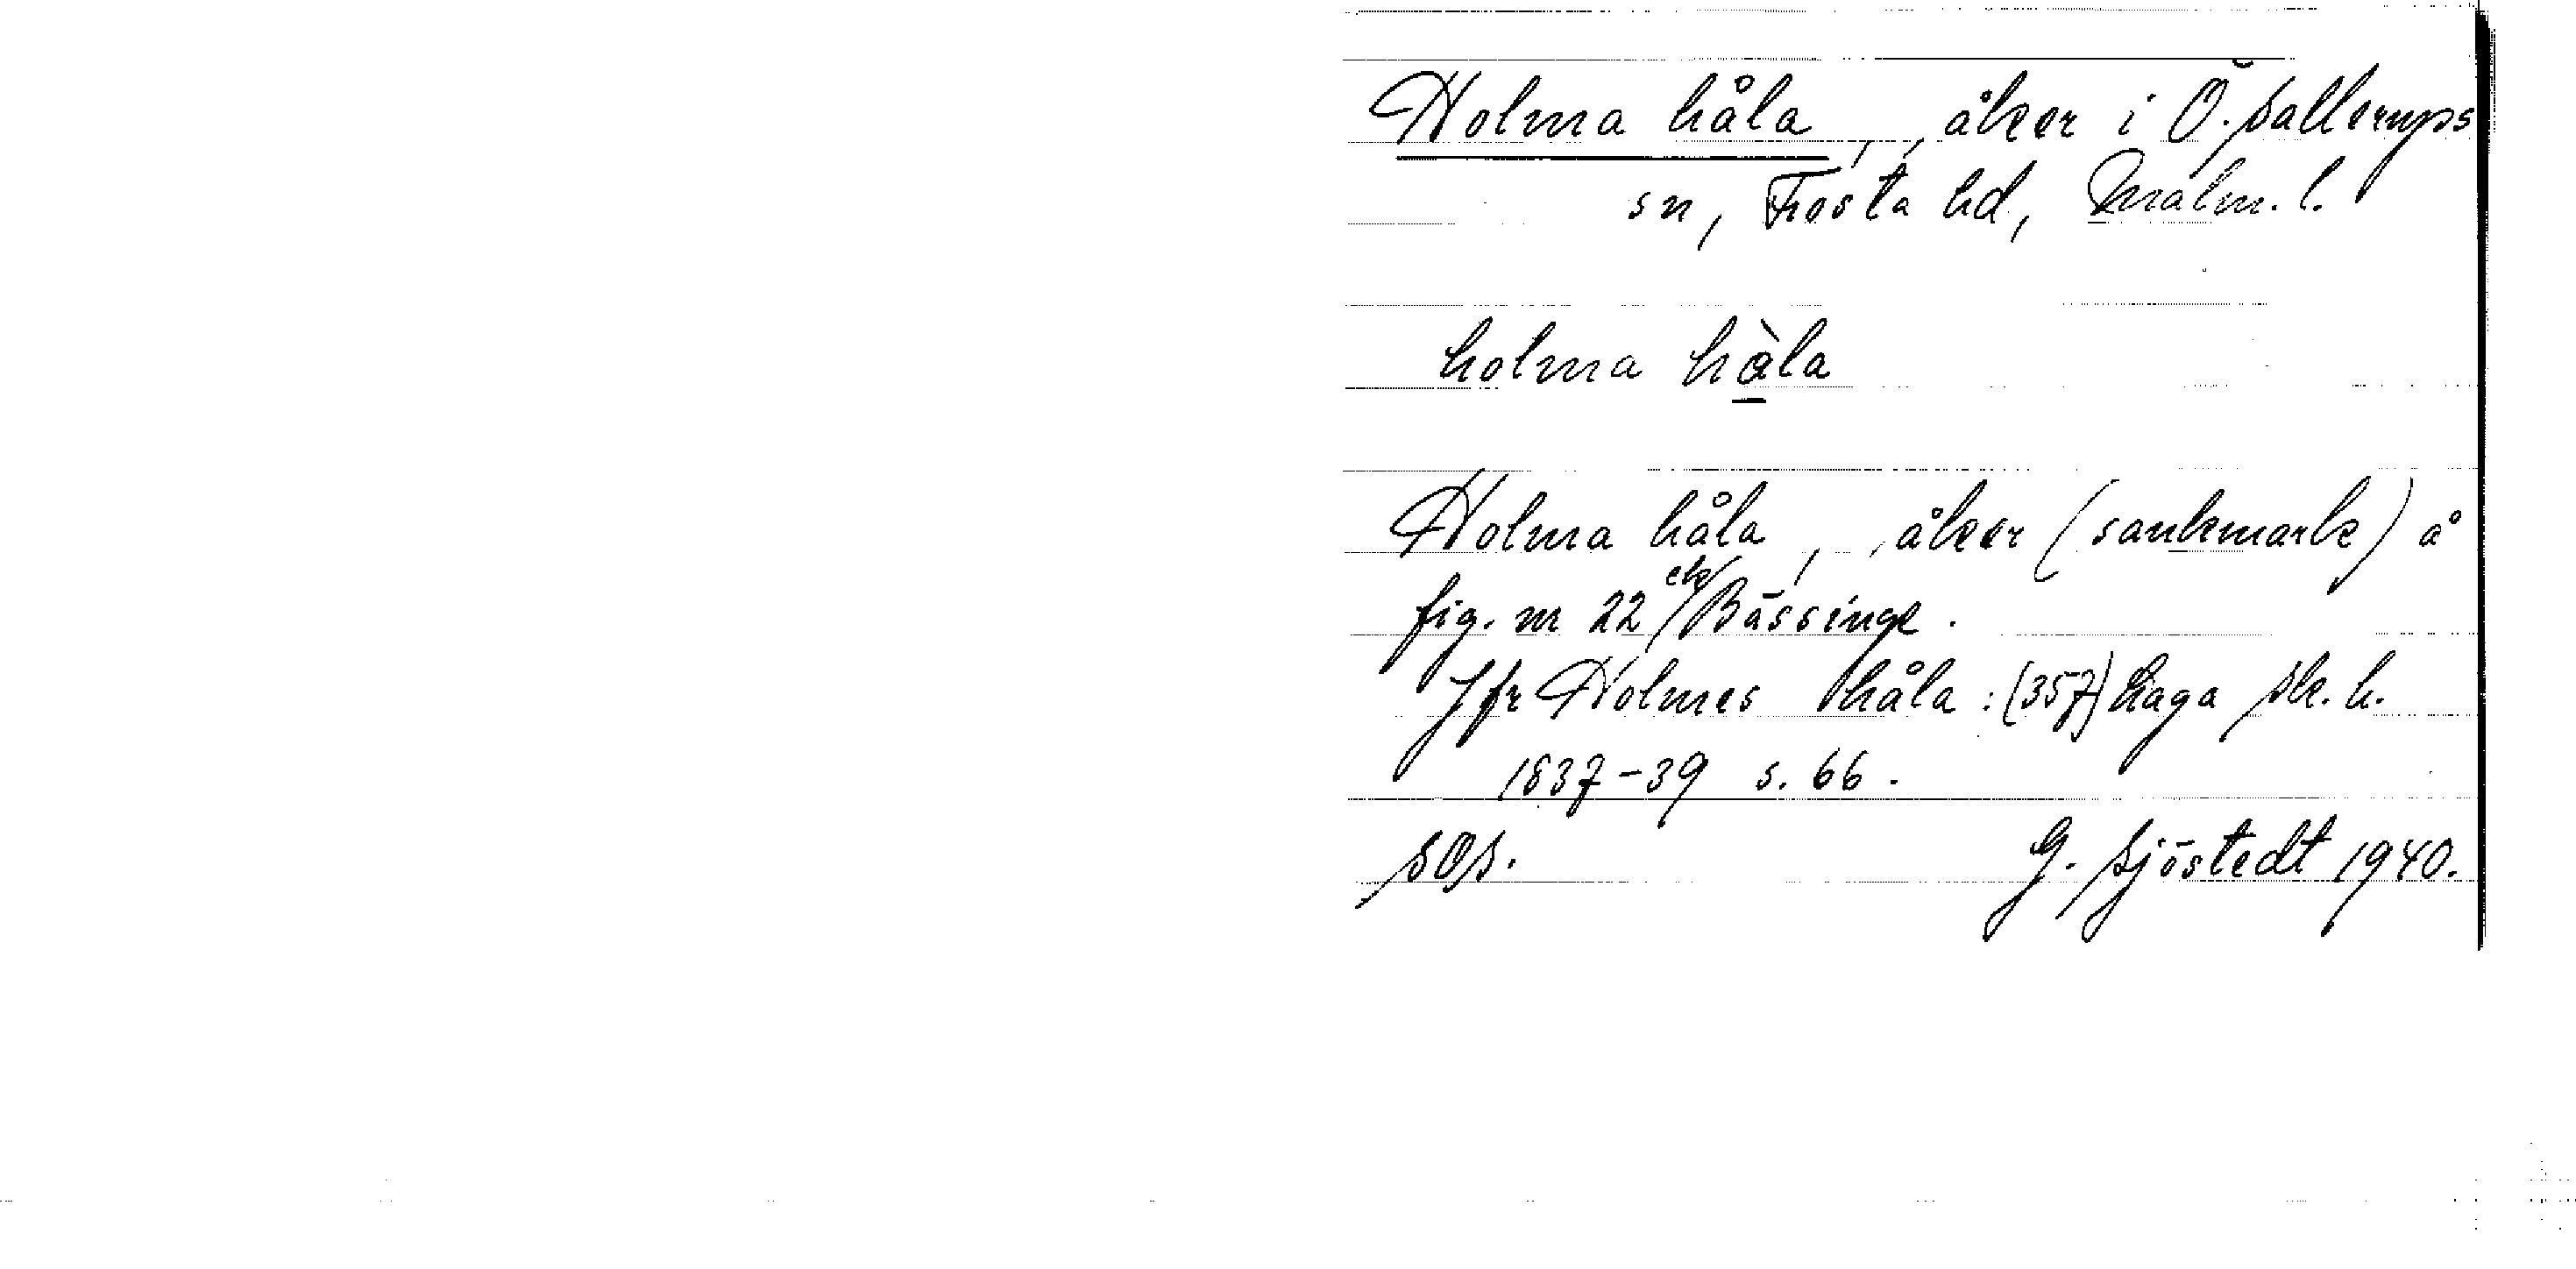 Holma håla, åker i Ö. Sallerups
sn, Frosta hd, Malm. l.
holma hàla
Holma håla, åker (sankmark) å
fig. nr 22 ek/Bässinge.
Jfr Holmes håla: (357) Laga sk. h.
1837-39 s. 66.
SOS. G. Sjöstedt 1940.